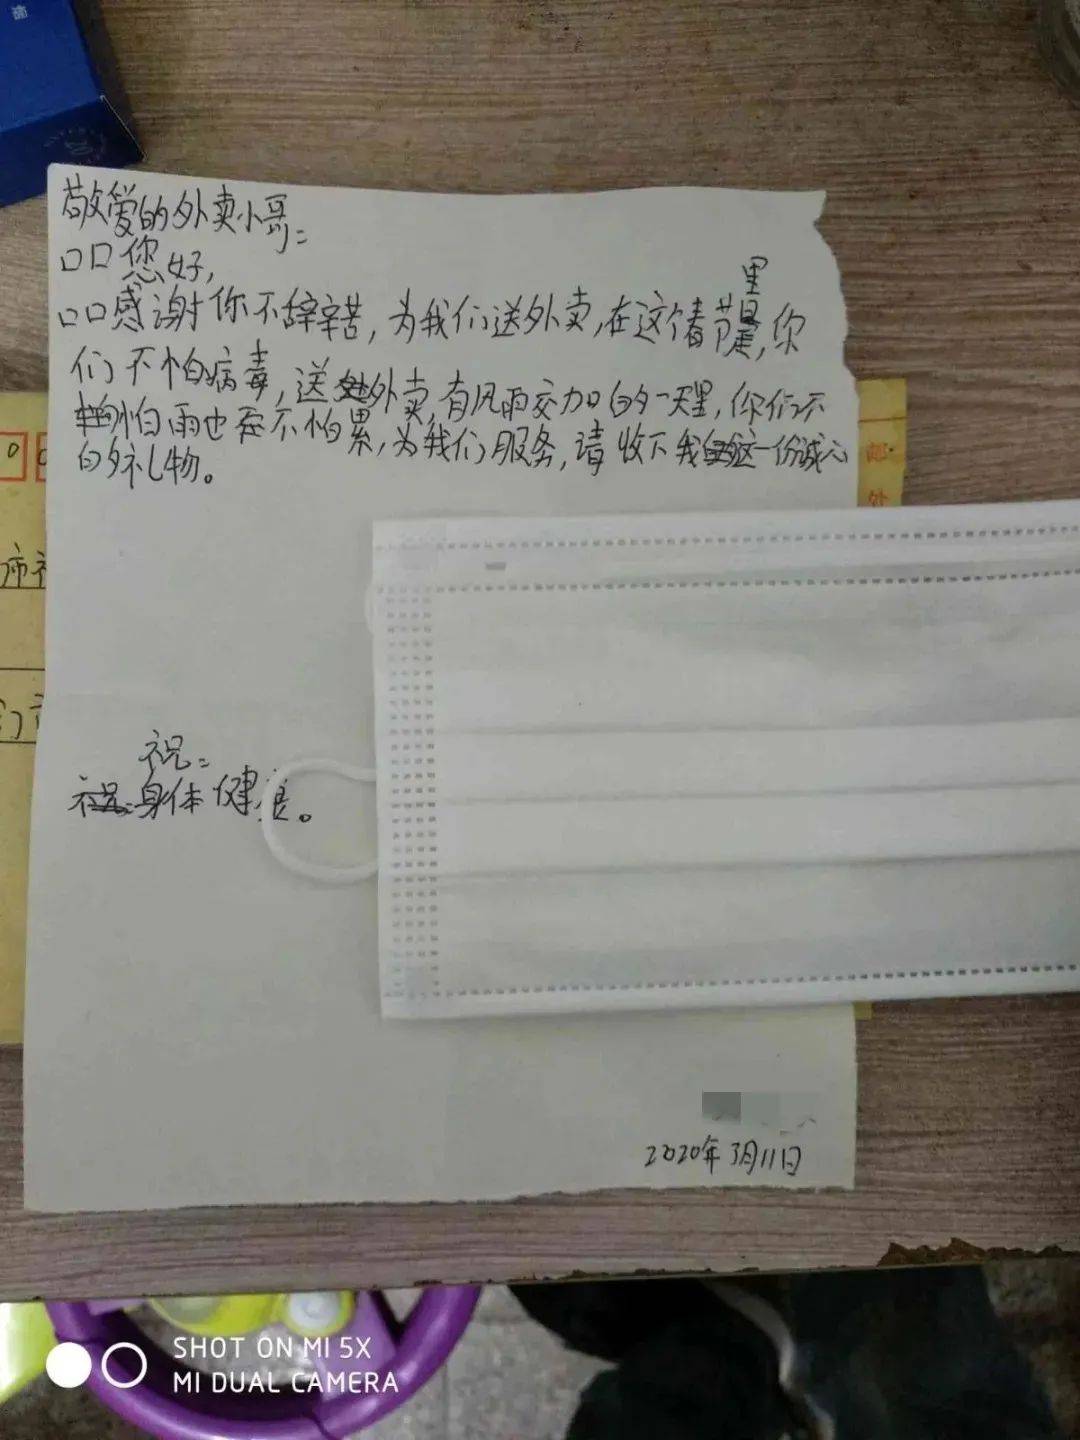 敬爱的外卖小哥：
口口您好，
口口感谢你不辞辛苦，为我们送外卖，在这个春节里，你
们不怕病毒，送外卖，有风雨交加的一天里，你们不
怕雨也不怕累，为我们服务，请收下我这一份诚心
的礼物。
祝：
身体健康。
2020年3月11日
邮
处
市
门
SHOT ON MI 5X
MI DUAL CAMERA